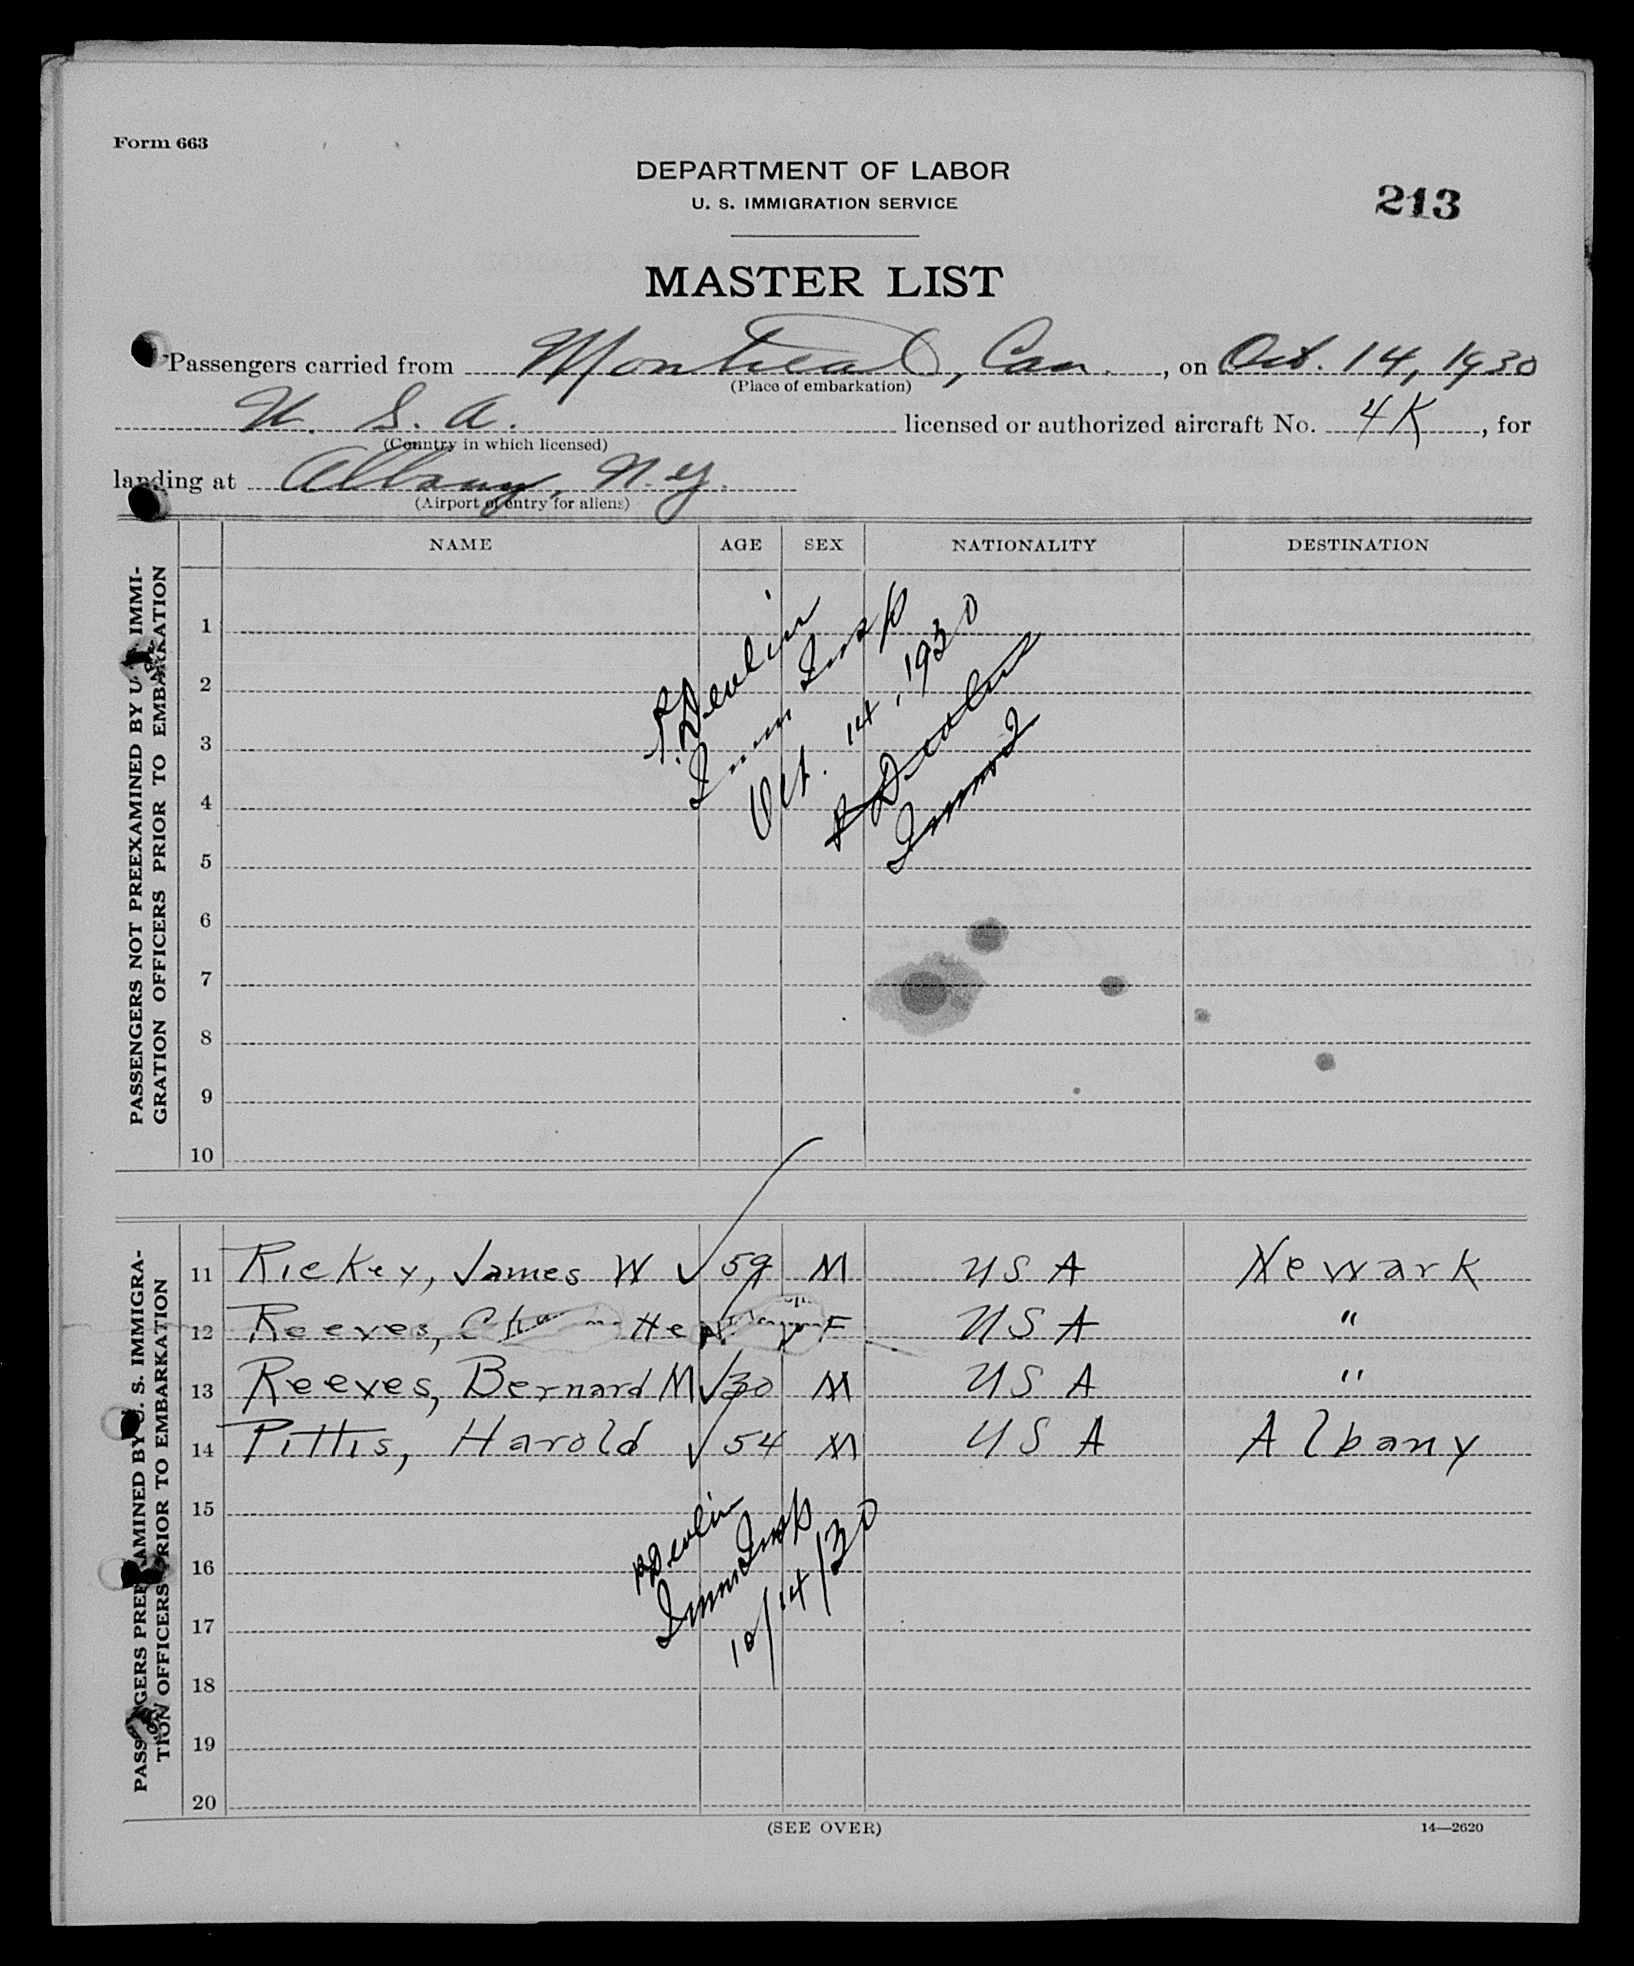 Form 663
DEPARTMENT OF LABOR
U. S. IMMIGRATION SERVICE
213
MASTER LIST
Passengers carried from Montreal, Can., on Oct. 14, 1930
(Place of embarkation)
U. S. A. licensed or authorized aircraft No. 4K, for
(Country in which licensed)
landing at Albany, N.Y.
(Airport of entry for aliens)
NAME AGE SEX NATIONALITY DESTINATION
PASSENGERS NOT PREEXAMINED BY U. IMMI-
GRATION OFFICERS PRIOR TO EMBARKATION
1
2
3
4
5
6
7
8
9
10
P. Devlin
Imm Insp
Oct. 14, 1930
P Devlin
PASSENGERS PREEXAMINED BY U. S. IMMIGRA-
TION OFFICERS PRIOR TO EMBARKATION
11 Rickey, James W ✓ 59 M USA Newark
12 Reeves, F USA "
13 Reeves, Bernard M ✓ 30 M USA "
14 Pittis, Harold ✓ 54 M USA Albany
15
16
17
18
19
20
P Devlin
Imm Insp
10/14/30
(SEE OVER)
14—2620